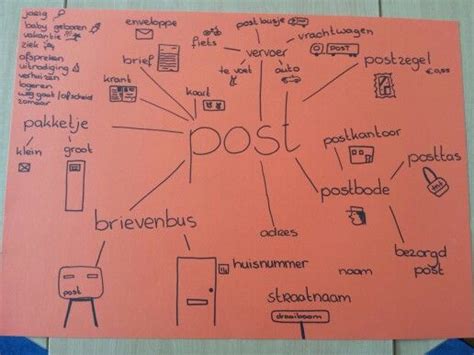 jarig
baby geboren
vakantie
ziek
afspreken
uitnodiging
verhuizen
logeren
weg gaat/afscheid
zomaar
enveloppe
brief
krant
kaart
post busje
fiets
vervoer
vrachtwagen
POST
te voet
auto
postzegel
€0,55
pakketje
klein
groot
post
postkantoor
posttas
postbode
bezorgd
post
brievenbus
post
adres
huisnummer
naam
straatnaam